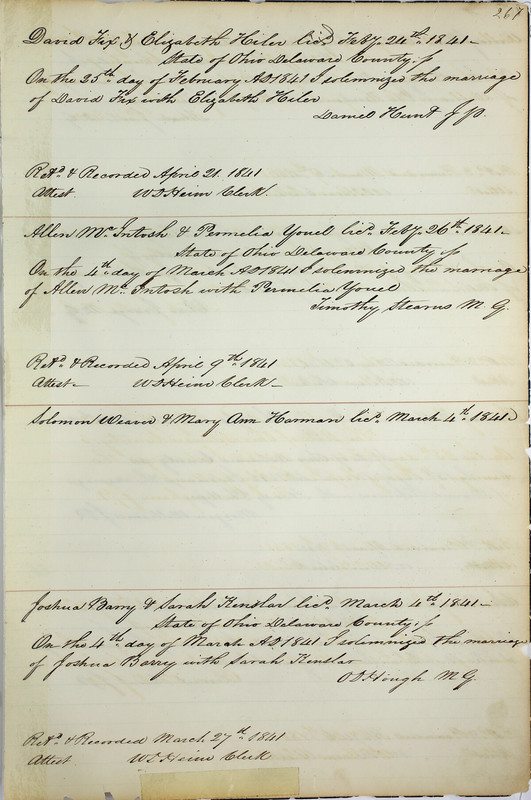 267
David Fix & Elizabeth Hiler licd. Feby. 24th. 1841-
State of Ohio Delaware County ss
On the 25th day of February AD 1841 I solemnized the marriage
of David Fix with Elizabeth Hiler
Daniel Hunt J P.
Retd. & Recorded April 21. 1841
Attest. W D Heim Clerk.
Allen Mc.Intosh & Permelia Youel licd. Feby. 26th. 1841-
State of Ohio Delaware County ss
On the 4th. day of March AD 1841 I solemnized the marriage
of Allen Mc. Intosh with Permelia Youel
Timothy Stearns M G.
Retd. & Recorded April 9th. 1841
Attest- W D Heim Clerk-
Solomon Weaver & Mary Ann Harman licd. March 4th. 1841-
Joshua Barry & Sarah Kenslar licd. March 4th. 1841-
State of Ohio Delaware County ss
On the 4th. day of March AD. 1841 I solemnized the marriage
of Joshua Barry with Sarah Kenslar
O D Hough M G.
Retd. & Recorded March 27th. 1841
Attest W D Heim Clerk